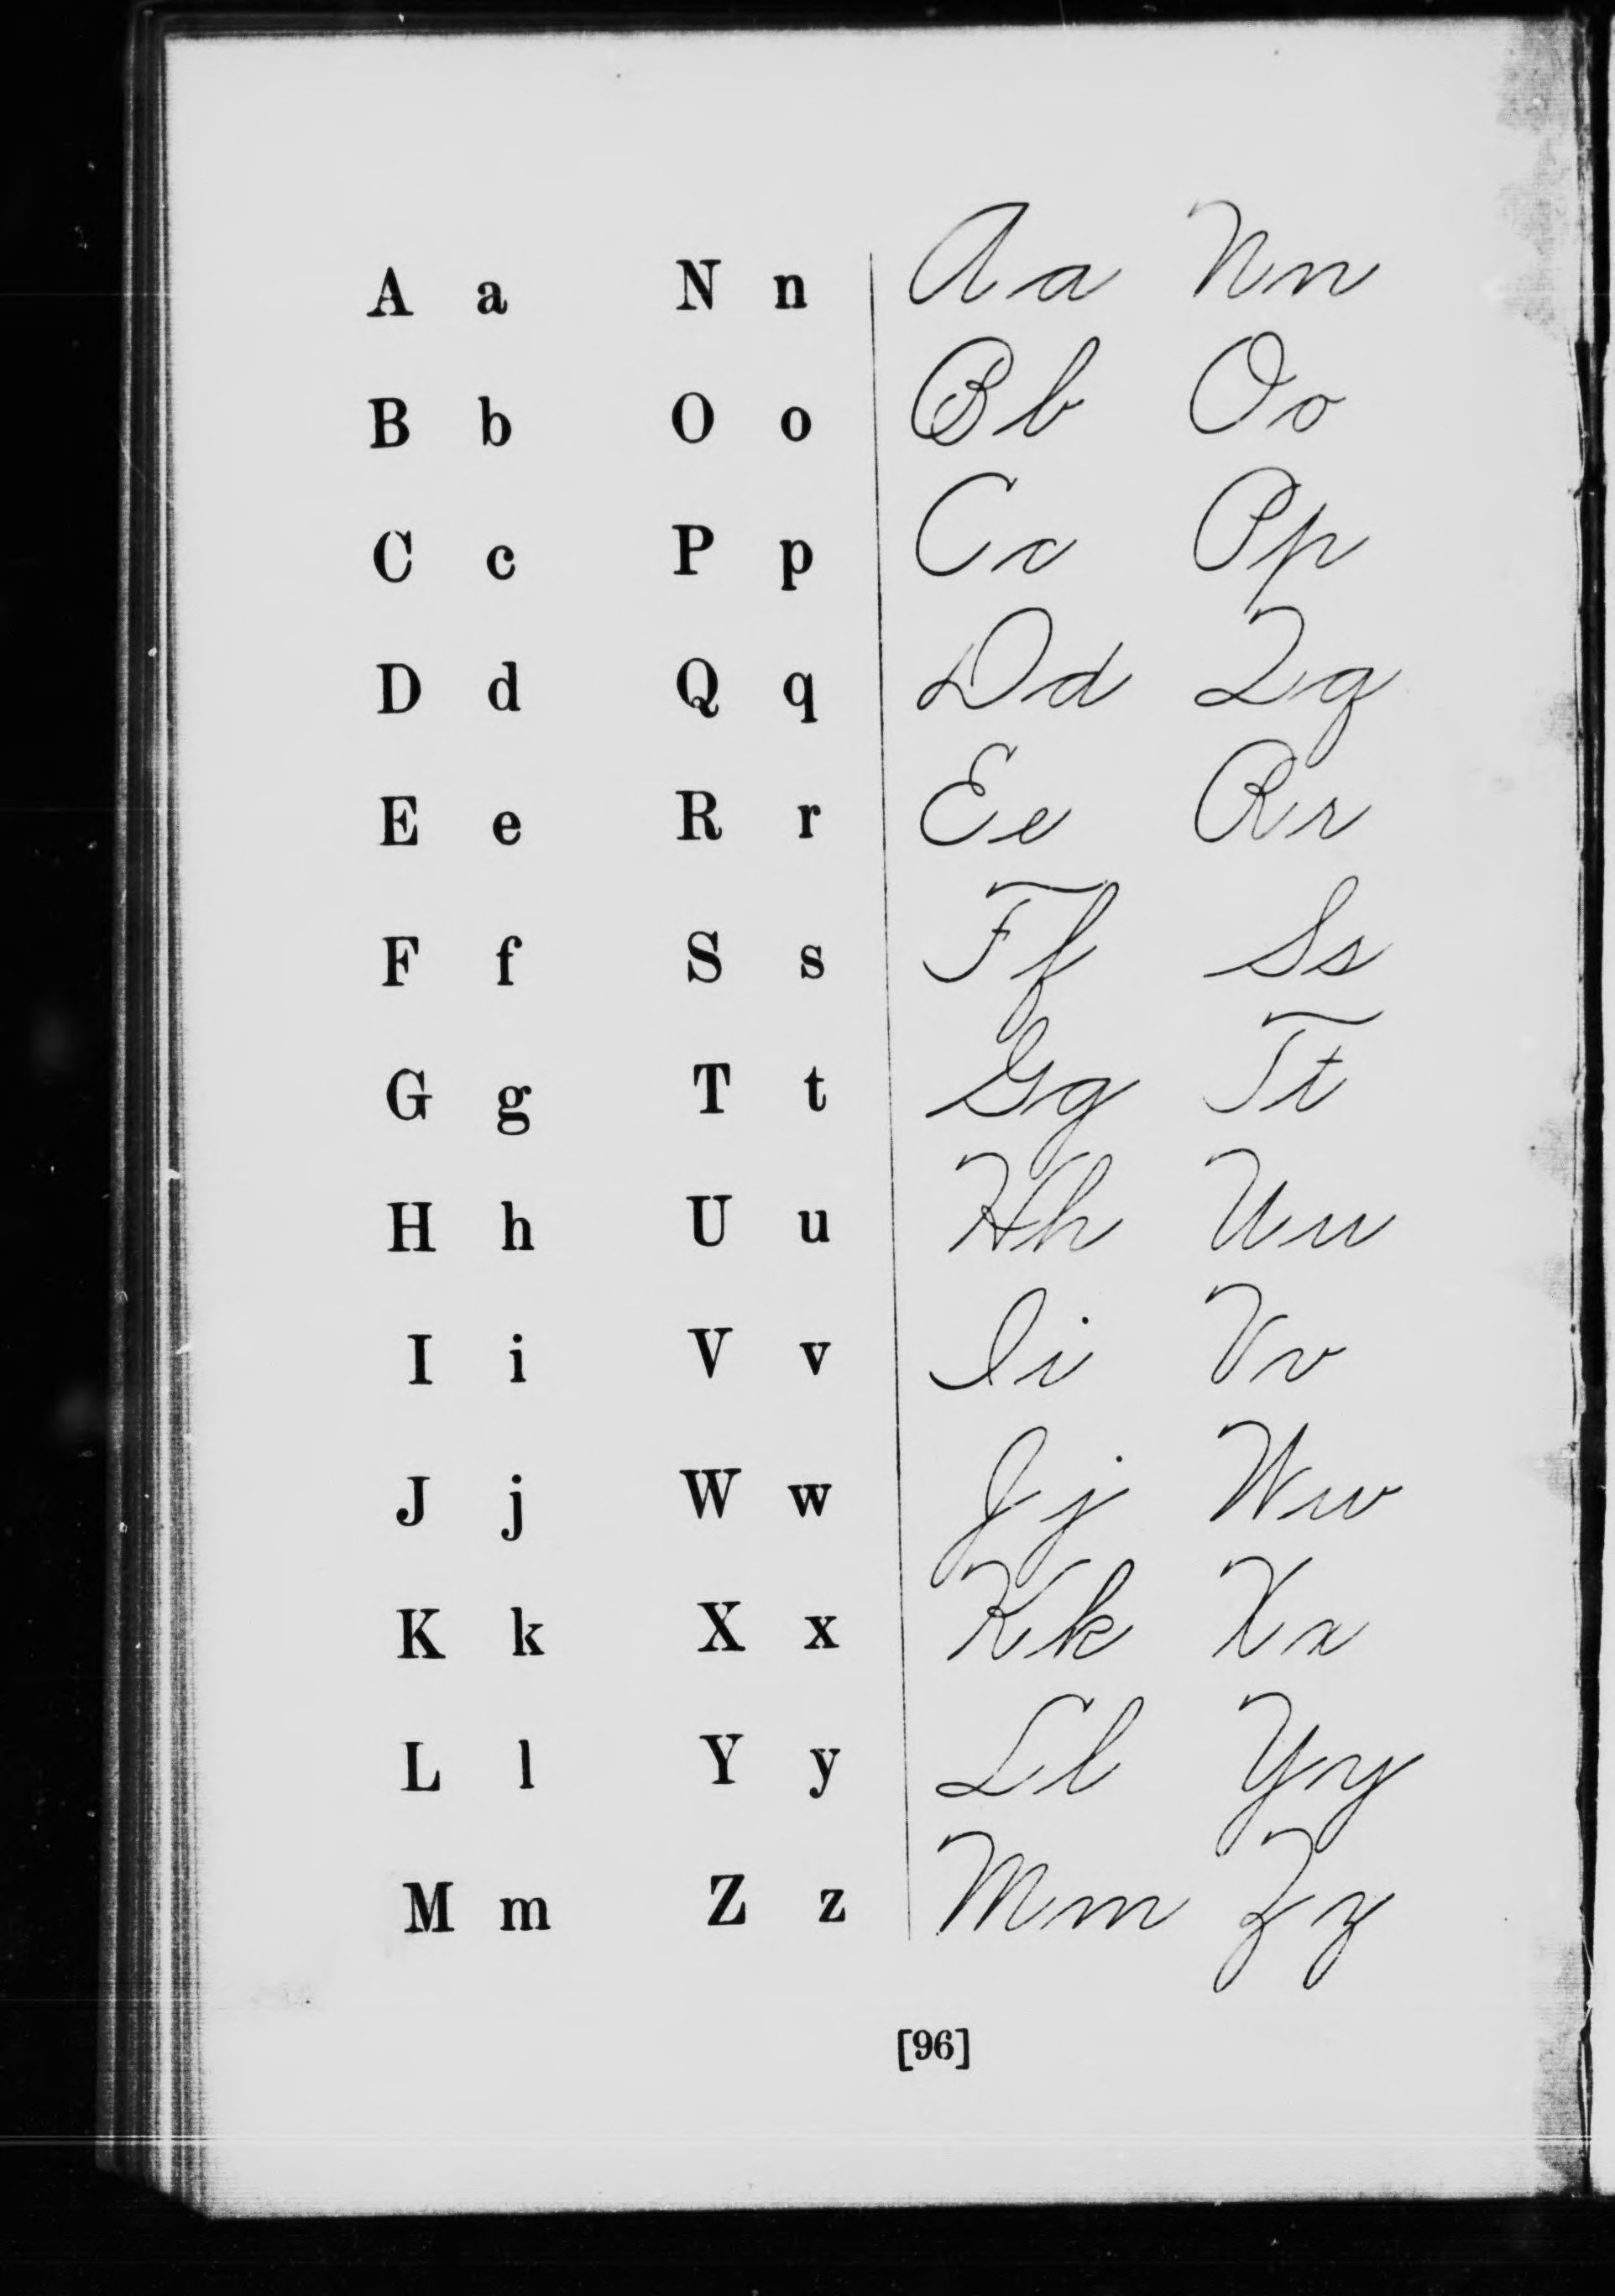 A a N n Aa Nn
B b O o Bb Oo
C c P p Cc Pp
D d Q q Dd Qq
E e R r Ee Rr
F f S s Ff Ss
G g T t Gg Tt
H h U u Hh Uu
I i V v Ii Vv
J j W w Jj Ww
K k X x Kk Xx
L l Y y Ll Yy
M m Z z Mm Zz
[96]